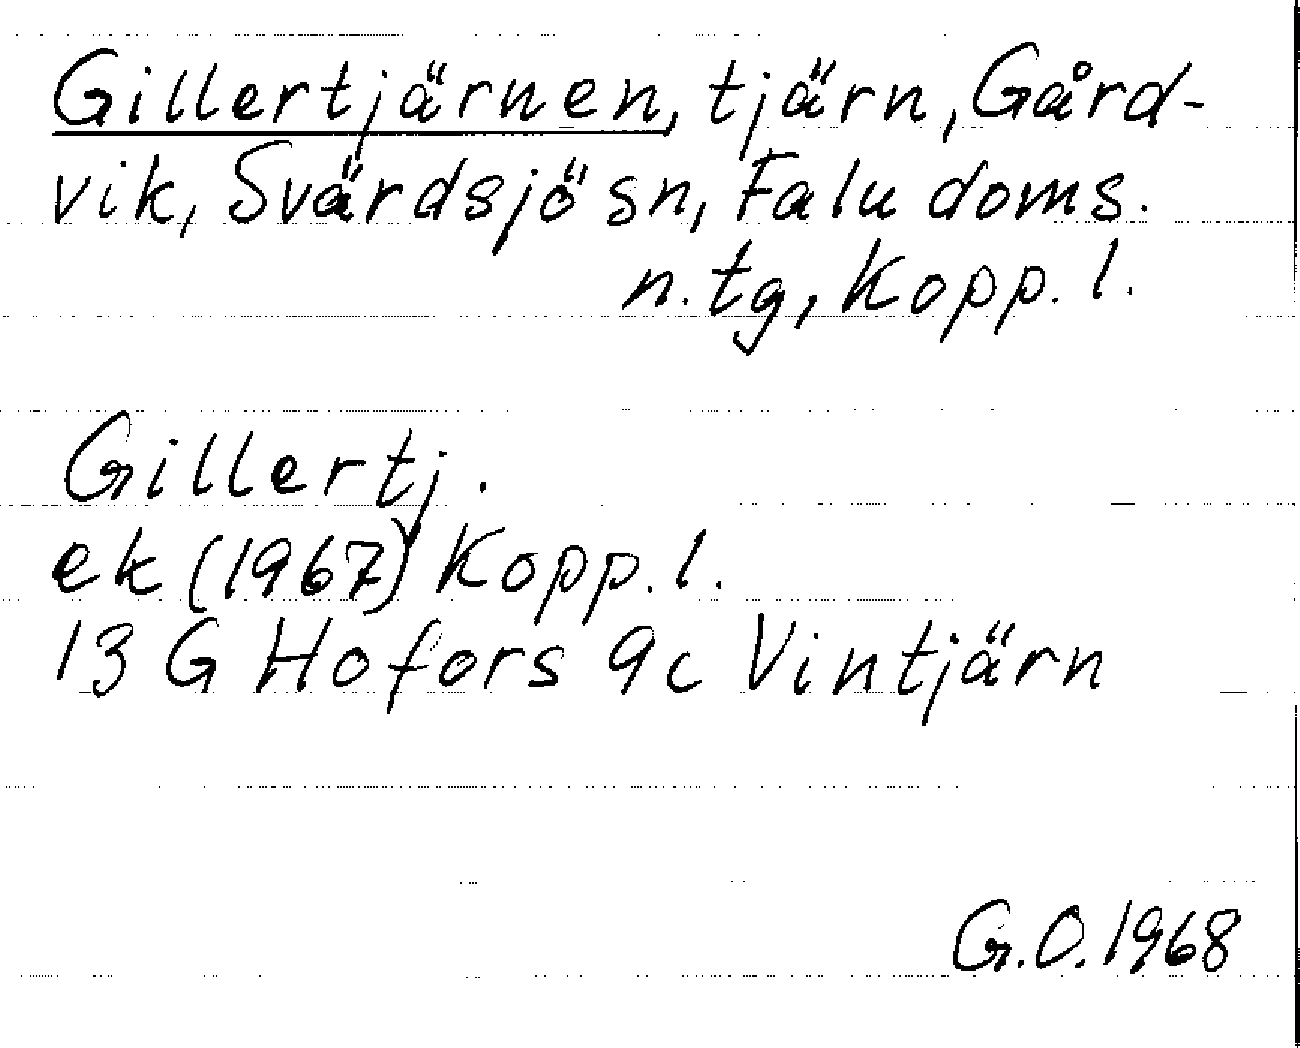 Gillertjärnen, tjärn, Gård-
vik, Svärdsjö sn, Falu doms.
n. tg, Kopp. l.
Gillertj.
ek (1967) Kopp. l.
13 G Hofors 9c Vintjärn
G.O. 1968